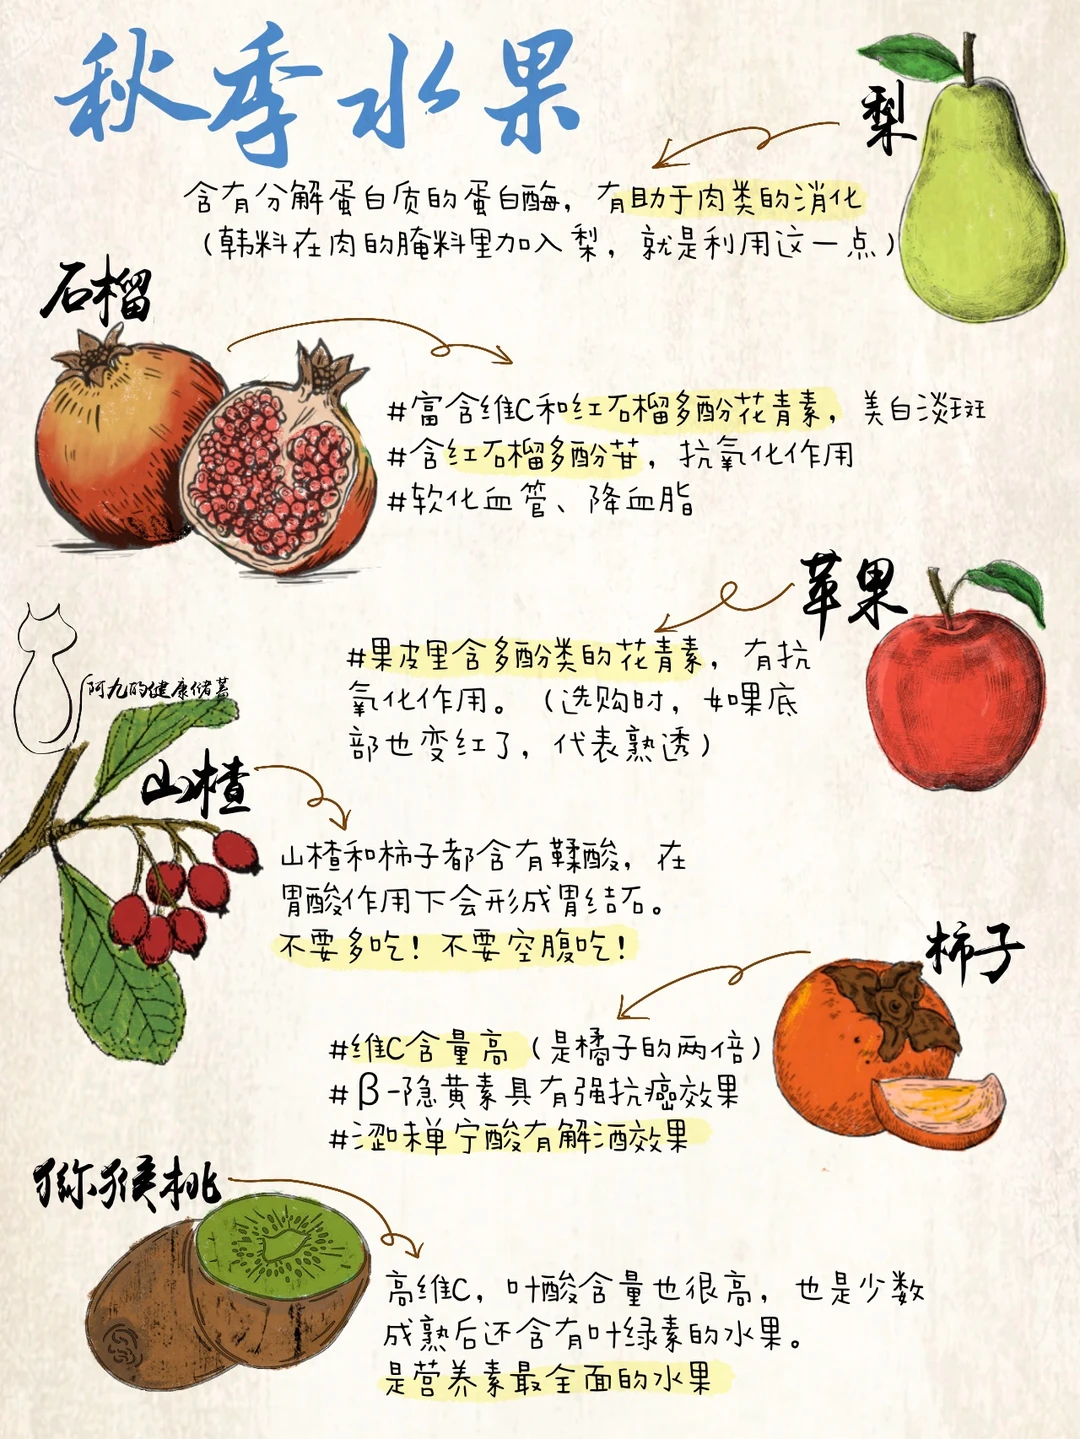 秋季水果
梨
含有分解蛋白质的蛋白酶，有助于肉类的消化
（韩料在肉的腌料里加入梨，就是利用这一点）
石榴
#富含维C和红石榴多酚花青素，美白淡斑
#含红石榴多酚苷，抗氧化作用
#软化血管、降血脂
苹果
#果皮里含多酚类的花青素，有抗
氧化作用。（选购时，如果底
部也变红了，代表熟透）
阿九的健康储蓄
山楂
山楂和柿子都含有鞣酸，在
胃酸作用下会形成胃结石。
不要多吃！不要空腹吃！
柿子
#维C含量高（是橘子的两倍）
#β-隐黄素具有强抗癌效果
#涩味单宁酸有解酒效果
猕猴桃
高维C，叶酸含量也很高，也是少数
成熟后还含有叶绿素的水果。
是营养素最全面的水果